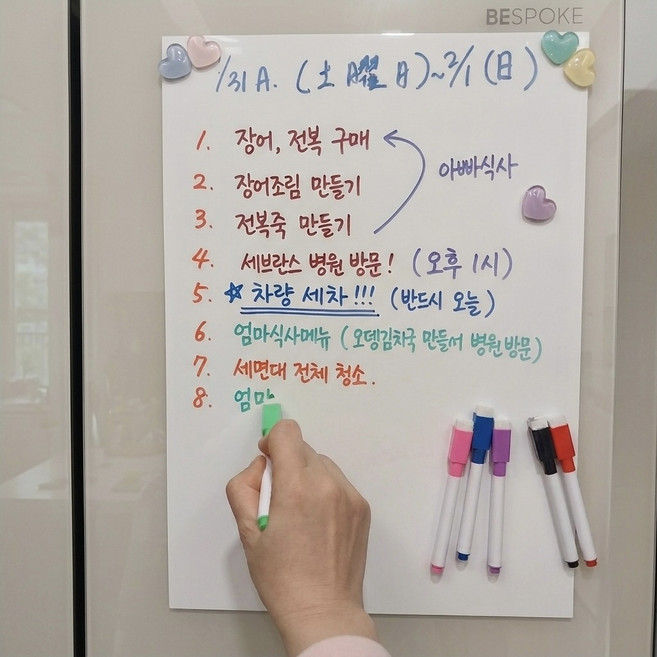 BESPOKE
1/31 A. (土曜日)~2/1 (日)
1. 장어, 전복 구매
아빠식사
2. 장어조림 만들기
3. 전복죽 만들기
4. 세브란스 병원 방문! (오후 1시)
5. ☆ 차량 세차!!! (반드시 오늘)
6. 엄마식사메뉴 (오뎅김치국 만들서 병원방문)
7. 세면대 전체 청소.
8. 엄마